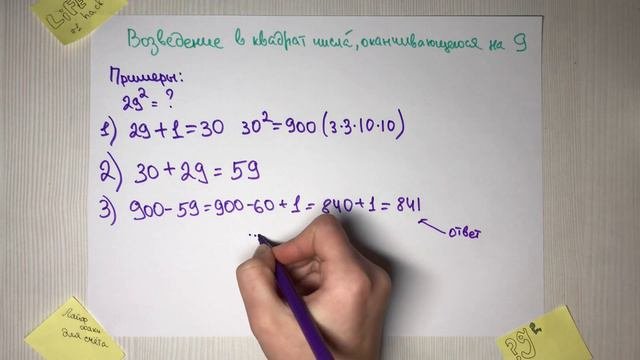 Life
hack
Возведение в квадрат числа, оканчивающегося на 9
Примеры:
29² = ?
1) 29+1=30 30²=900 (3·3·10·10)
2) 30+29=59
3) 900-59=900-60+1=840+1=841
ответ
...
Лайф
хаки
для счёта
29²